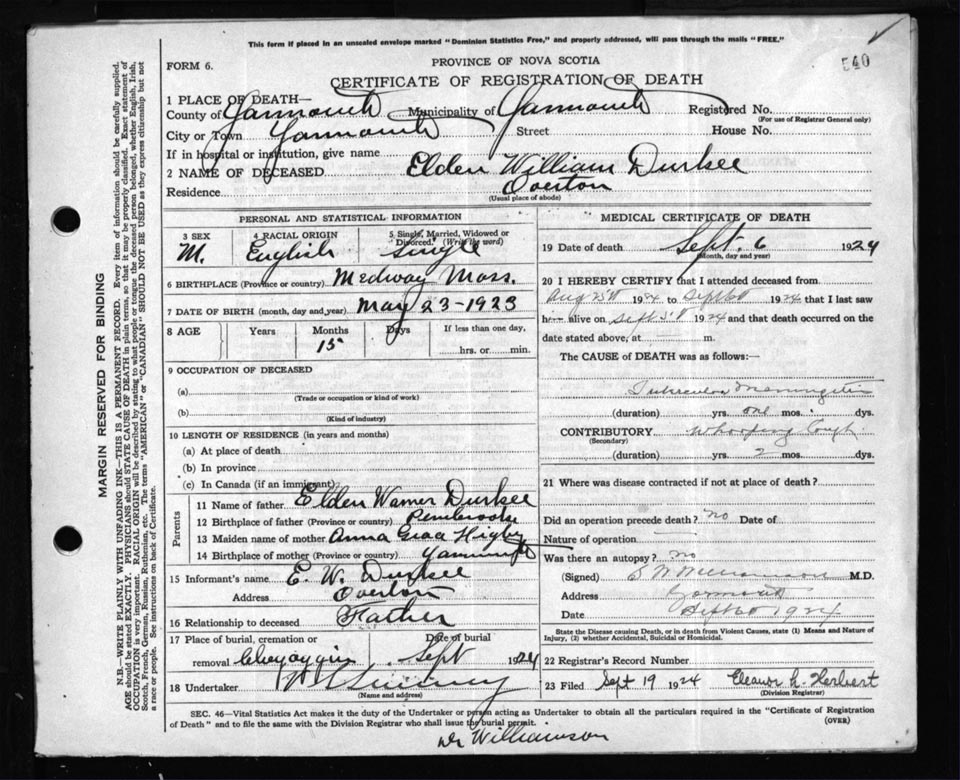 This form if placed in an unsealed envelope marked "Dominion Statistics Free," and properly addressed, will pass through the mails "FREE."
540
FORM 6.
PROVINCE OF NOVA SCOTIA
CERTIFICATE OF REGISTRATION OF DEATH
1 PLACE OF DEATH—
County of Yarmouth Municipality of Yarmouth Registered No.
(For use of Registrar General only)
City or Town Yarmouth Street House No.
If in hospital or institution, give name
2 NAME OF DECEASED Elden William Durkee
Residence Overton
(Usual place of abode)
PERSONAL AND STATISTICAL INFORMATION
3 SEX 4 RACIAL ORIGIN 5 Single, Married, Widowed or Divorced. (Write the word)
M. English Single
6 BIRTHPLACE (Province or country) Medway Mass.
7 DATE OF BIRTH (month, day, and year) May 23-1923
8 AGE Years Months Days If less than one day,
15 hrs. or min.
9 OCCUPATION OF DECEASED
(a)
(Trade or occupation or kind of work)
(b)
(Kind of industry)
10 LENGTH OF RESIDENCE (in years and months)
(a) At place of death
(b) In province
(c) In Canada (if an immigrant)
Parents
11 Name of father Elden Warner Durkee
12 Birthplace of father (Province or country) Pembroke
13 Maiden name of mother Anna Higby
14 Birthplace of mother (Province or country) Yarmouth
15 Informant's name E. W. Durkee
Address Overton
16 Relationship to deceased Father
17 Place of burial, cremation or removal Date of burial
Sept 1924
18 Undertaker
(Name and address)
MEDICAL CERTIFICATE OF DEATH
19 Date of death Sept. 6 1924
(Month, day and year)
20 I HEREBY CERTIFY that I attended deceased from
Aug 25th 1924 to Sept 6th 1924 that I last saw
h alive on Sept 5th 1924 and that death occurred on the
date stated above, at m.
The CAUSE of DEATH was as follows:
Tubercular Meningitis
(duration) yrs. one mos. dys.
CONTRIBUTORY Whooping Cough
(Secondary)
(duration) yrs. 2 mos. dys.
21 Where was disease contracted if not at place of death?
Did an operation precede death? no Date of
Nature of operation
Was there an autopsy? no
(Signed) Williamson M.D.
Address Yarmouth
Date Sept 6th 1924
State the Disease causing Death, or in death from Violent Causes, state (1) Means and Nature of Injury, (2) whether Accidental, Suicidal or Homicidal.
22 Registrar's Record Number
23 Filed Sept 19 1924 Eleanor L. Herbert
(Division Registrar)
SEC. 46—Vital Statistics Act makes it the duty of the Undertaker or person acting as Undertaker to obtain all the particulars required in the "Certificate of Registration
of Death" and to file the same with the Division Registrar who shall issue the burial permit. (OVER)
Dr Williamson
MARGIN RESERVED FOR BINDING
N.B.—WRITE PLAINLY WITH UNFADING INK—THIS IS A PERMANENT RECORD. Every item of information should be carefully supplied.
AGE should be stated EXACTLY. PHYSICIANS should STATE CAUSE OF DEATH in plain terms, so that it may be properly classified. Exact statement of
OCCUPATION is very important. RACIAL ORIGIN will be described by stating to what people or tongue the deceased person belonged, whether English, Irish,
Scotch, French, German, Russian, Ruthenian, etc. The terms "AMERICAN" or "CANADIAN" SHOULD NOT BE USED as they express citizenship but not
a race or people. See instructions on back of Certificate.